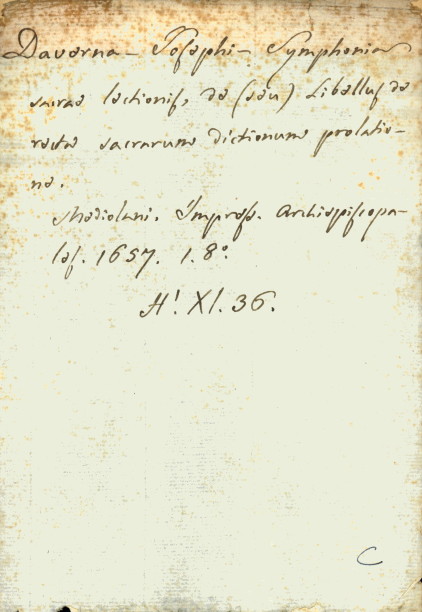 Daverna - Josephi - Symphonia
sacrae lectionis, de (seu) Libellus de
recta sacrarum dictionum prolatio-
ne.
Mediolani. Impress. Archiepiscopa-
les. 1657. 1. 8°.
H! XI. 36.
C